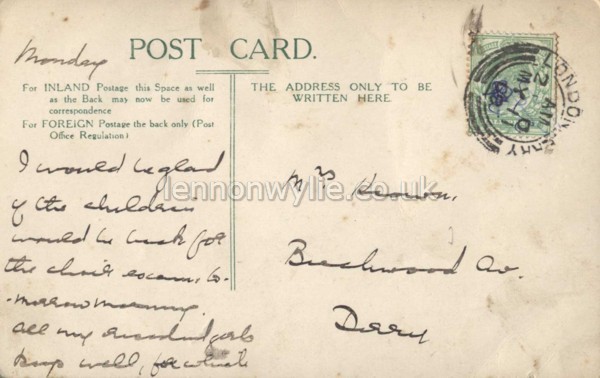 Monday
POST CARD.
For INLAND Postage this Space as well
as the Back may now be used for
correspondence
For FOREIGN Postage the back only (Post
Office Regulation)
THE ADDRESS ONLY TO BE
WRITTEN HERE
LONDONDERRY
12 AM
MY 10
lennonwylie.co.uk
I would be glad
if the children
would be back for
the choir exam. to-
-morrow morning.
all my
keep well, for which
Mrs
Beechwood Av.
Derry